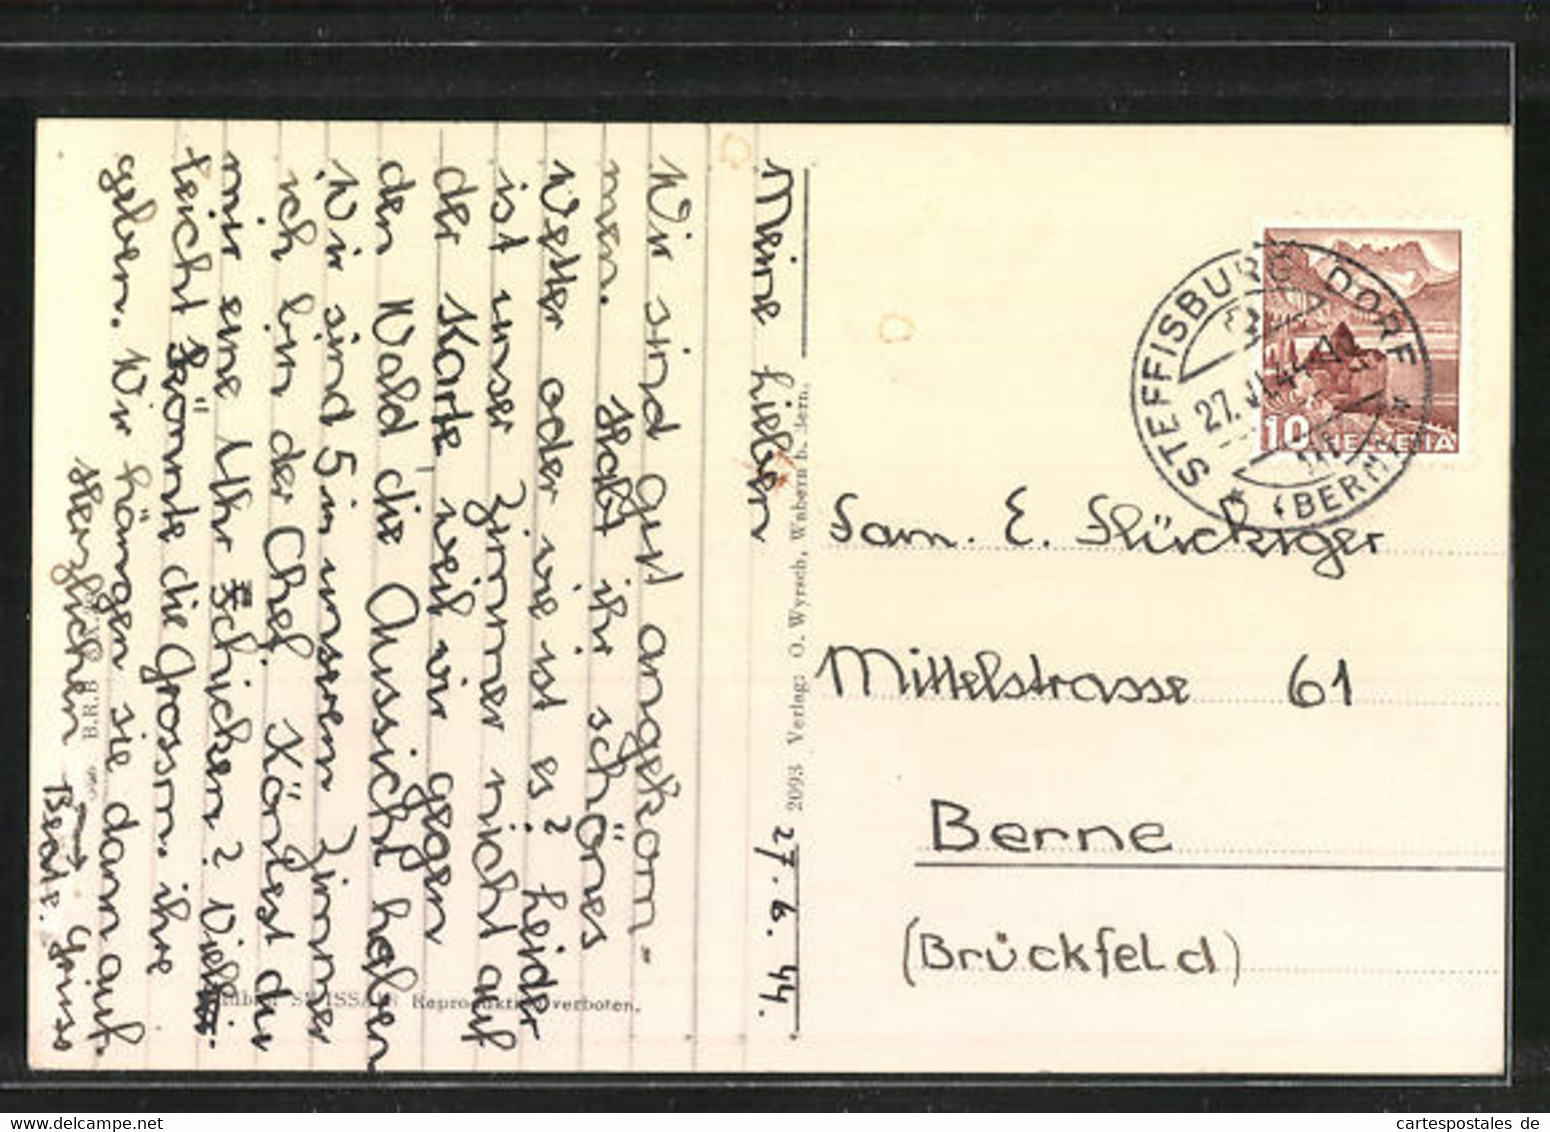 Meine Lieben 27.6.44.
Wir sind gut angekom-
men. Habt ihr schönes
Wetter oder wie ist es? Leider
ist unser Zimmer nicht auf
der Karte, weil wir gegen
den Wald die Aussicht haben
Wir sind 5 in unserem Zimmer
ich bin der Chef. Könntest du
mir eine Uhr schicken? Viel-
leicht könnte die Grossm. ihre
geben. Wir hängen sie dann auf.
Herzlichen Gruss
Beat.
2093 Verlag: O. Wyrsch, Wabern b. Bern.
B.R.B.
SWISSAIR Reproduktion verboten.
STEFFISBURG DORF
27.VI.44
(BERN)
10 HELVETIA
Fam. E. Flückiger
Mittelstrasse 61
Berne
(Brückfeld)
cartespostales de